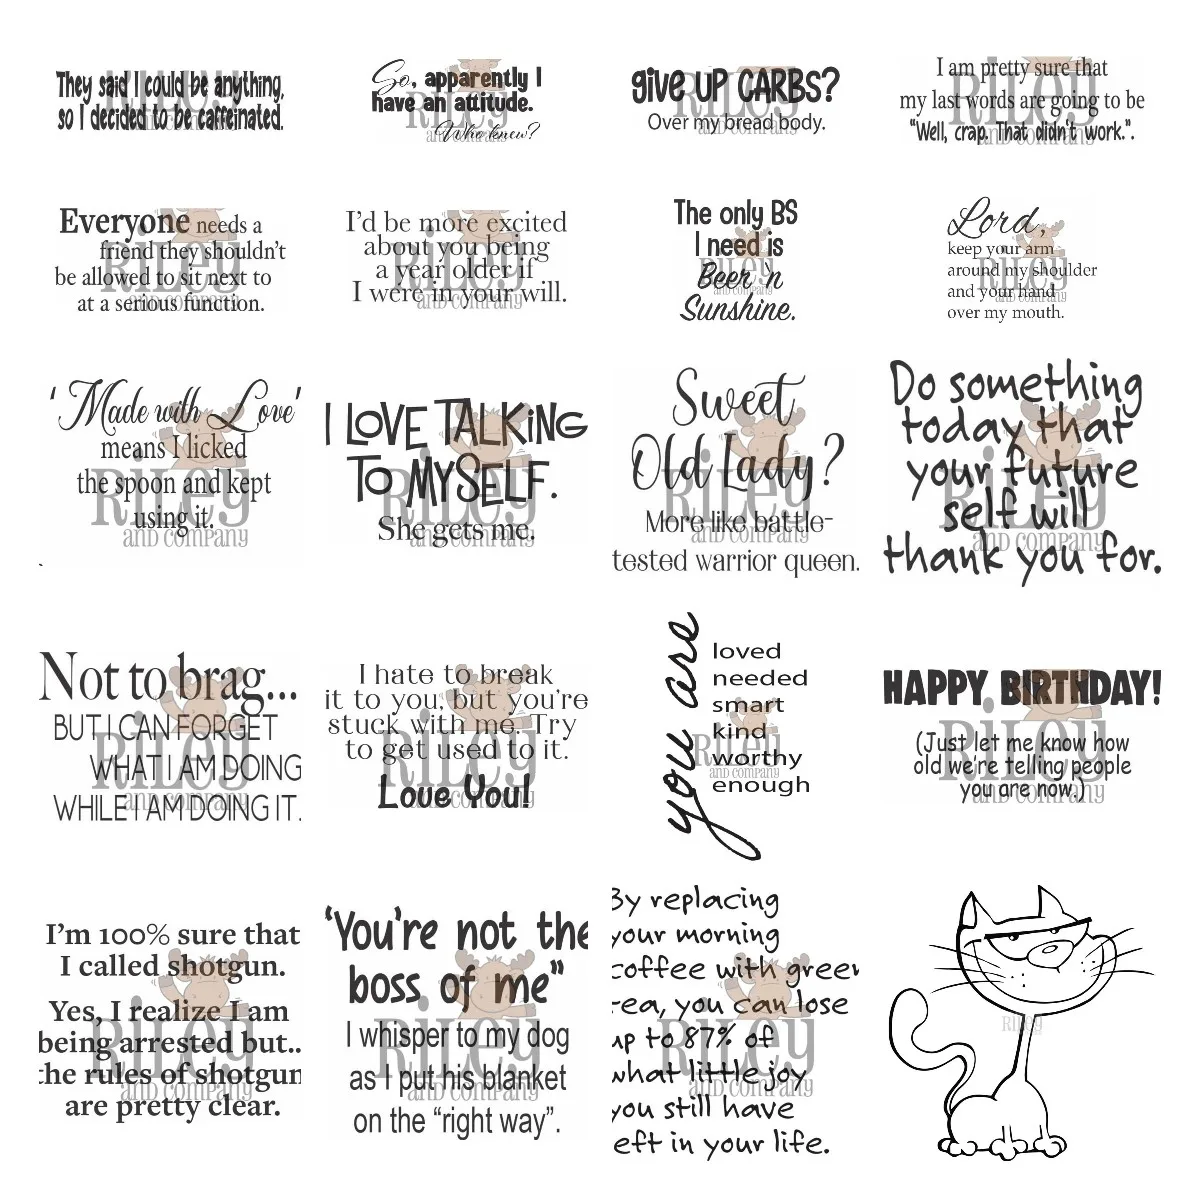 They said I could be anything,
so I decided to be caffeinated.
RiLey
AND COMPANY
So, apparently I
have an attitude.
Who knew?
RiLey
AND COMPANY
give UP CARBS?
Over my bread body.
RiLey
AND COMPANY
I am pretty sure that
my last words are going to be
"Well, crap. That didn't work.".
RiLey
AND COMPANY
Everyone needs a
friend they shouldn't
be allowed to sit next to
at a serious function.
RiLey
AND COMPANY
I'd be more excited
about you being
a year older if
I were in your will.
RiLey
AND COMPANY
The only BS
I need is
Beer 'n
Sunshine.
RiLey
AND COMPANY
Lord,
keep your arm
around my shoulder
and your hand
over my mouth.
RiLey
AND COMPANY
'Made with Love'
means I licked
the spoon and kept
using it.
RiLey
AND COMPANY
I LOVE TALKING
TO MYSELF.
She gets me.
RiLey
AND COMPANY
Sweet
Old Lady?
More like battle-
tested warrior queen.
RiLey
AND COMPANY
Do something
today that
your future
self will
thank you for.
RiLey
AND COMPANY
Not to brag...
BUT I CAN FORGET
WHAT I AM DOING
WHILE I AM DOING IT.
RiLey
AND COMPANY
I hate to break
it to you, but you're
stuck with me. Try
to get used to it.
Love You!
RiLey
AND COMPANY
you are
loved
needed
smart
kind
worthy
enough
RiLey
AND COMPANY
HAPPY BIRTHDAY!
(Just let me know how
old we're telling people
you are now.)
RiLey
AND COMPANY
I'm 100% sure that
I called shotgun.
Yes, I realize I am
being arrested but..
the rules of shotgun
are pretty clear.
RiLey
AND COMPANY
'You're not the
boss of me"
I whisper to my dog
as I put his blanket
on the "right way".
RiLey
AND COMPANY
By replacing
your morning
coffee with green
tea, you can lose
up to 87% of
what little joy
you still have
left in your life.
RiLey
AND COMPANY
RiLEY